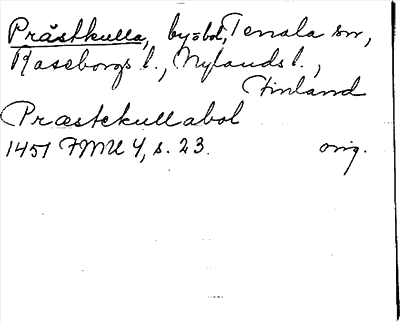 Prästkulla, by=bol, Tenala sn,
Raseborgs l., Nylands l.,
Finland
Præstekullabol
1451 FMU 4, s. 23. orig.